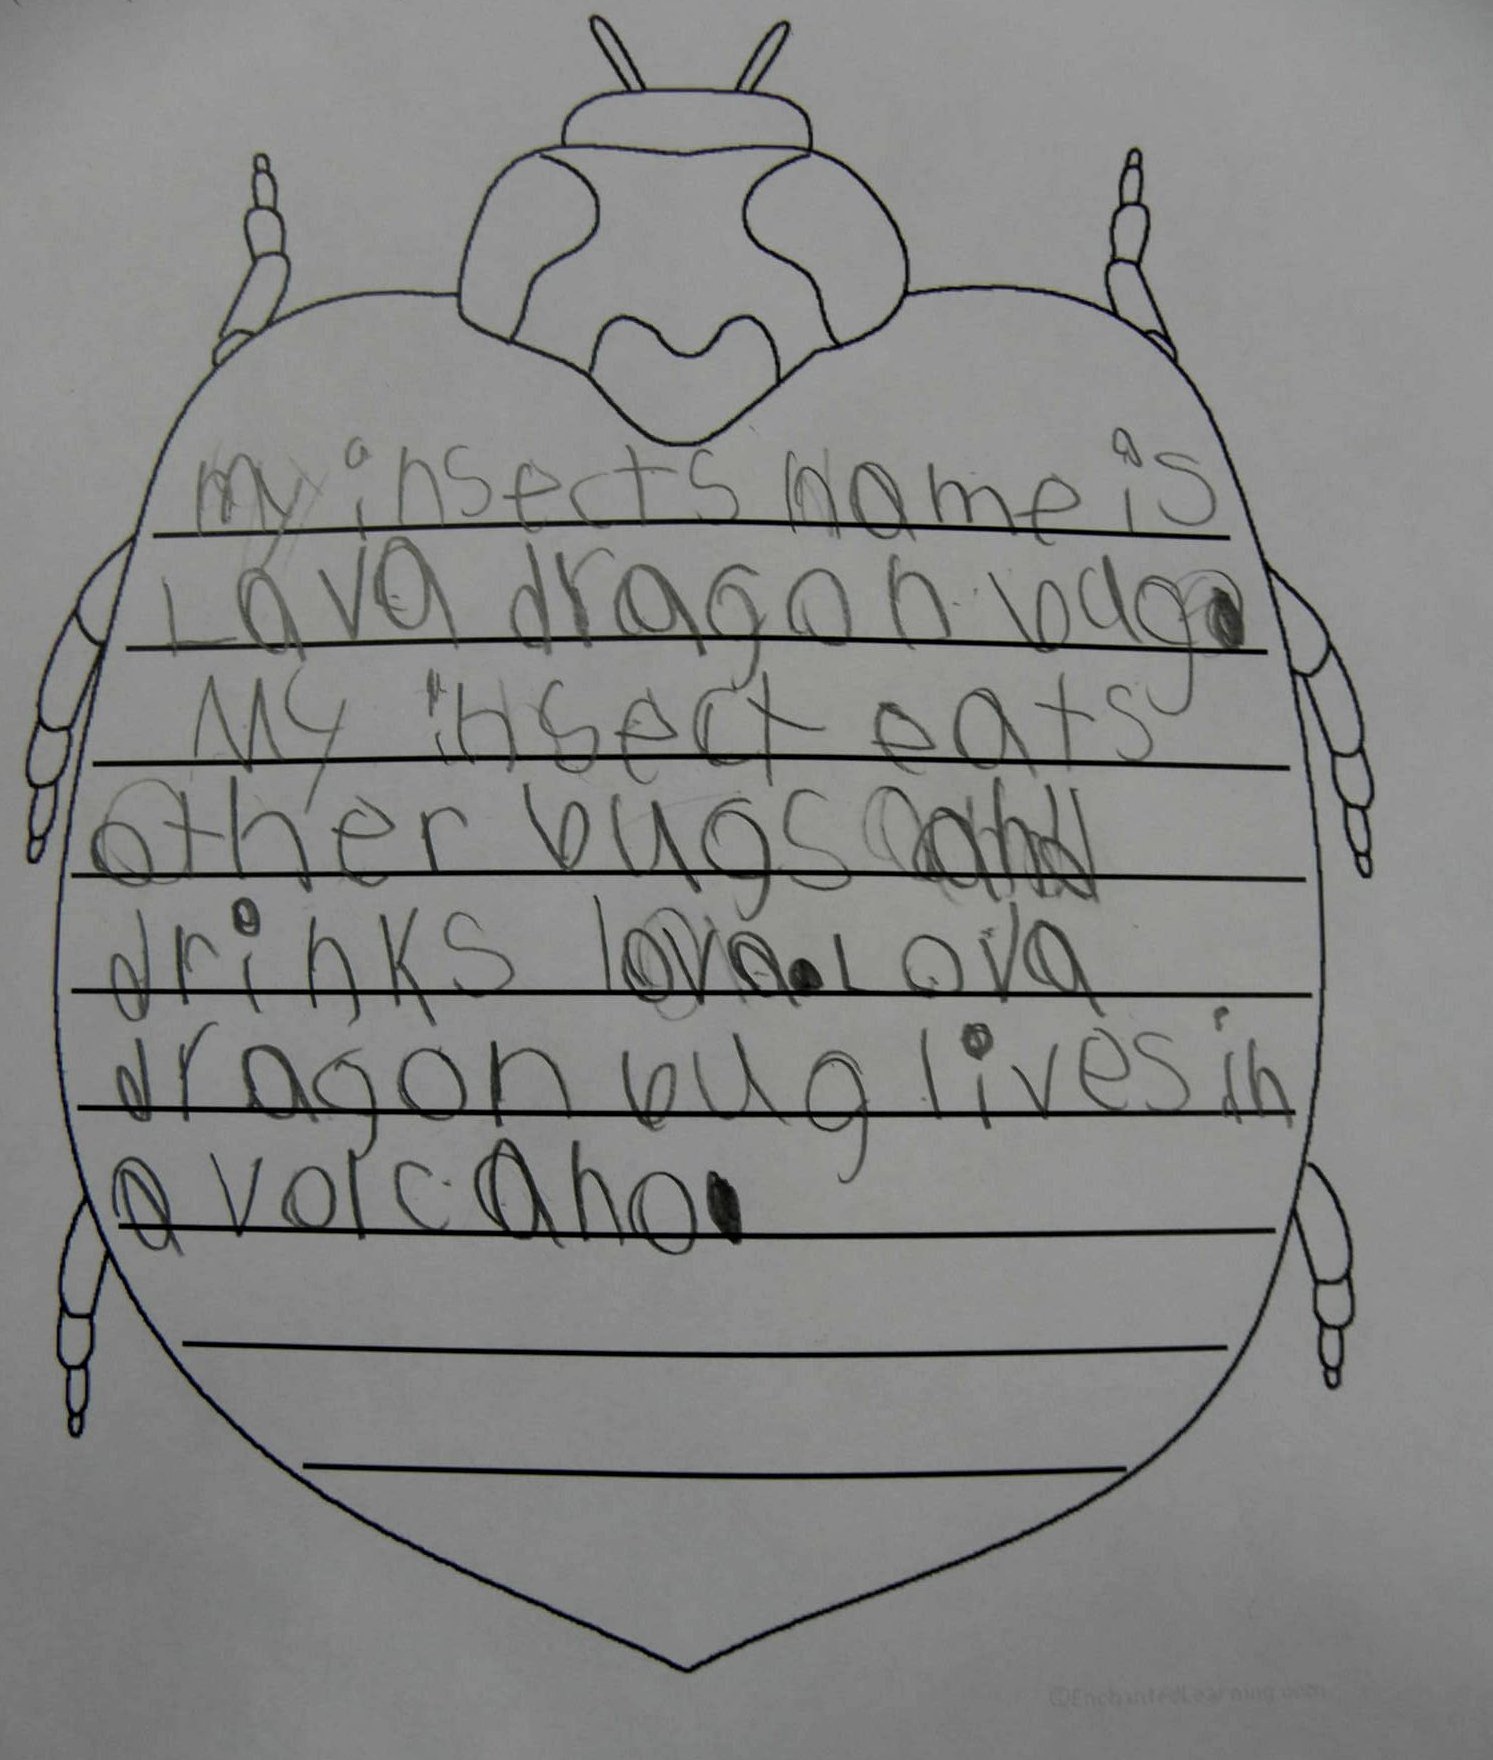 my insects name is
Lava dragon bug.
My insect eats
other bugs and
drinks lava. Lova
dragon bug lives in
a volcano.
©EnchantedLearning.com